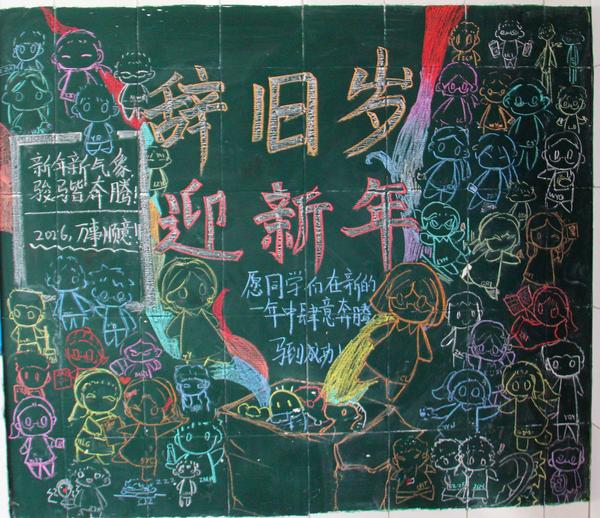 辞旧岁
迎新年
新年新气象
骏骥奔腾!
2026,万事顺意!
愿同学们在新的
一年中肆意奔腾
马到成功!